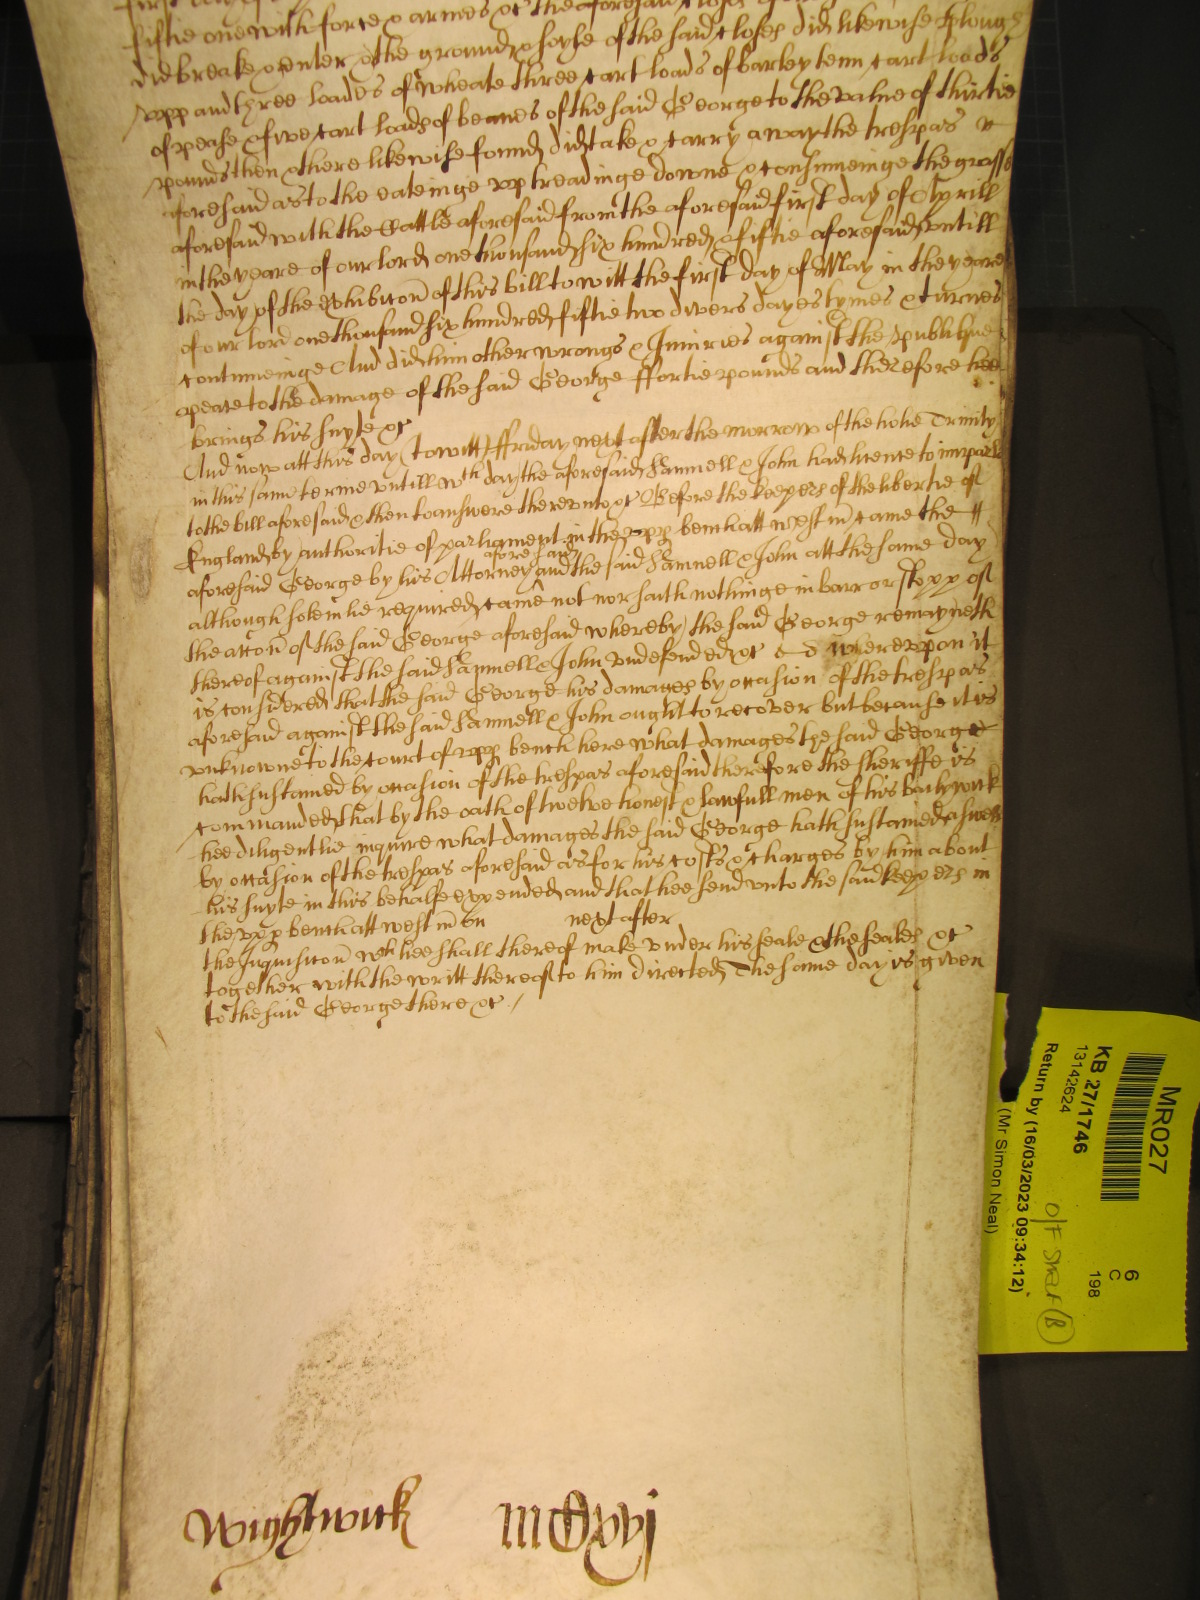 fiftie one with force & armes &c the aforesaid closes
did breake & enter & the ground & soyle of the said closes did likewise plough
upp and three loades of wheate three cart loads of barley tenn cart loads
of pease & five cart loads of beanes of the said George to the value of thirtie
pounds then & there likewise found did take & carry away the trespas
aforesaid as to the eateinge upp treadinge downe & consumeinge the grasse
aforesaid with the Cattle aforesaid from the aforesaid first day of Aprill
in the yeare of our lord one thousand six hundred & fiftie aforesaid untill
the day of the exhibicon of this bill to witt the first day of May in the yeare
of our lord one thousand six hundred fiftie two divers dayes tymes & turnes
continueinge And did him other wrongs & Iniuries against the publique
peace to the damage of the said George ffortie pounds and therefore hee
brings his suyte &c
And now att this day (to witt) ffriday next after the morrow of the holie Trinity
in this same terme untill wch day the aforesaid Samuell & John had licence to imparle
to the bill aforesaid & then to answere thereunto &c Before the keepers of the libertie of
England by authoritie of parliament in the upp bench att westm came the
aforesaid George by his Attorney aforesaid and the said Samuell & John att the same day
although solemlie required came not nor saith nothinge in barr or stopp of
the accon of the said George aforesaid whereby the said George remayneth
thereof against the said Samuell & John undefended &c whereupon it
is considered that the said George his damages by occasion of the trespas
aforesaid against the said Samuell & John ought to recover but because it is
unknowne to the court of upp bench here what damages the said George
hath sustained by occasion of the trespas aforesaid therefore the sheriffe is
commanded that by the oath of twelve honest & lawfull men of his bailywick
hee diligentlie inquire what damages the said George hath sustained aswell
by occasion of the trespas aforesaid as for his costs & charges by him about
his suyte in this behalfe expended and that hee send unto the said keepers in
the upp bench att westm on next after
the Inquisicon wch hee shall thereof make under his seale & the seales &c
together with the writt thereof to him directed The same day is given
to the said George there &c
Wightwick mCxvj
MR027
KB 27/1746
13142624
6
C
198
Return by (16/03/2023 09:34:12)
O/F Shelf (B)
(Mr Simon Neal)